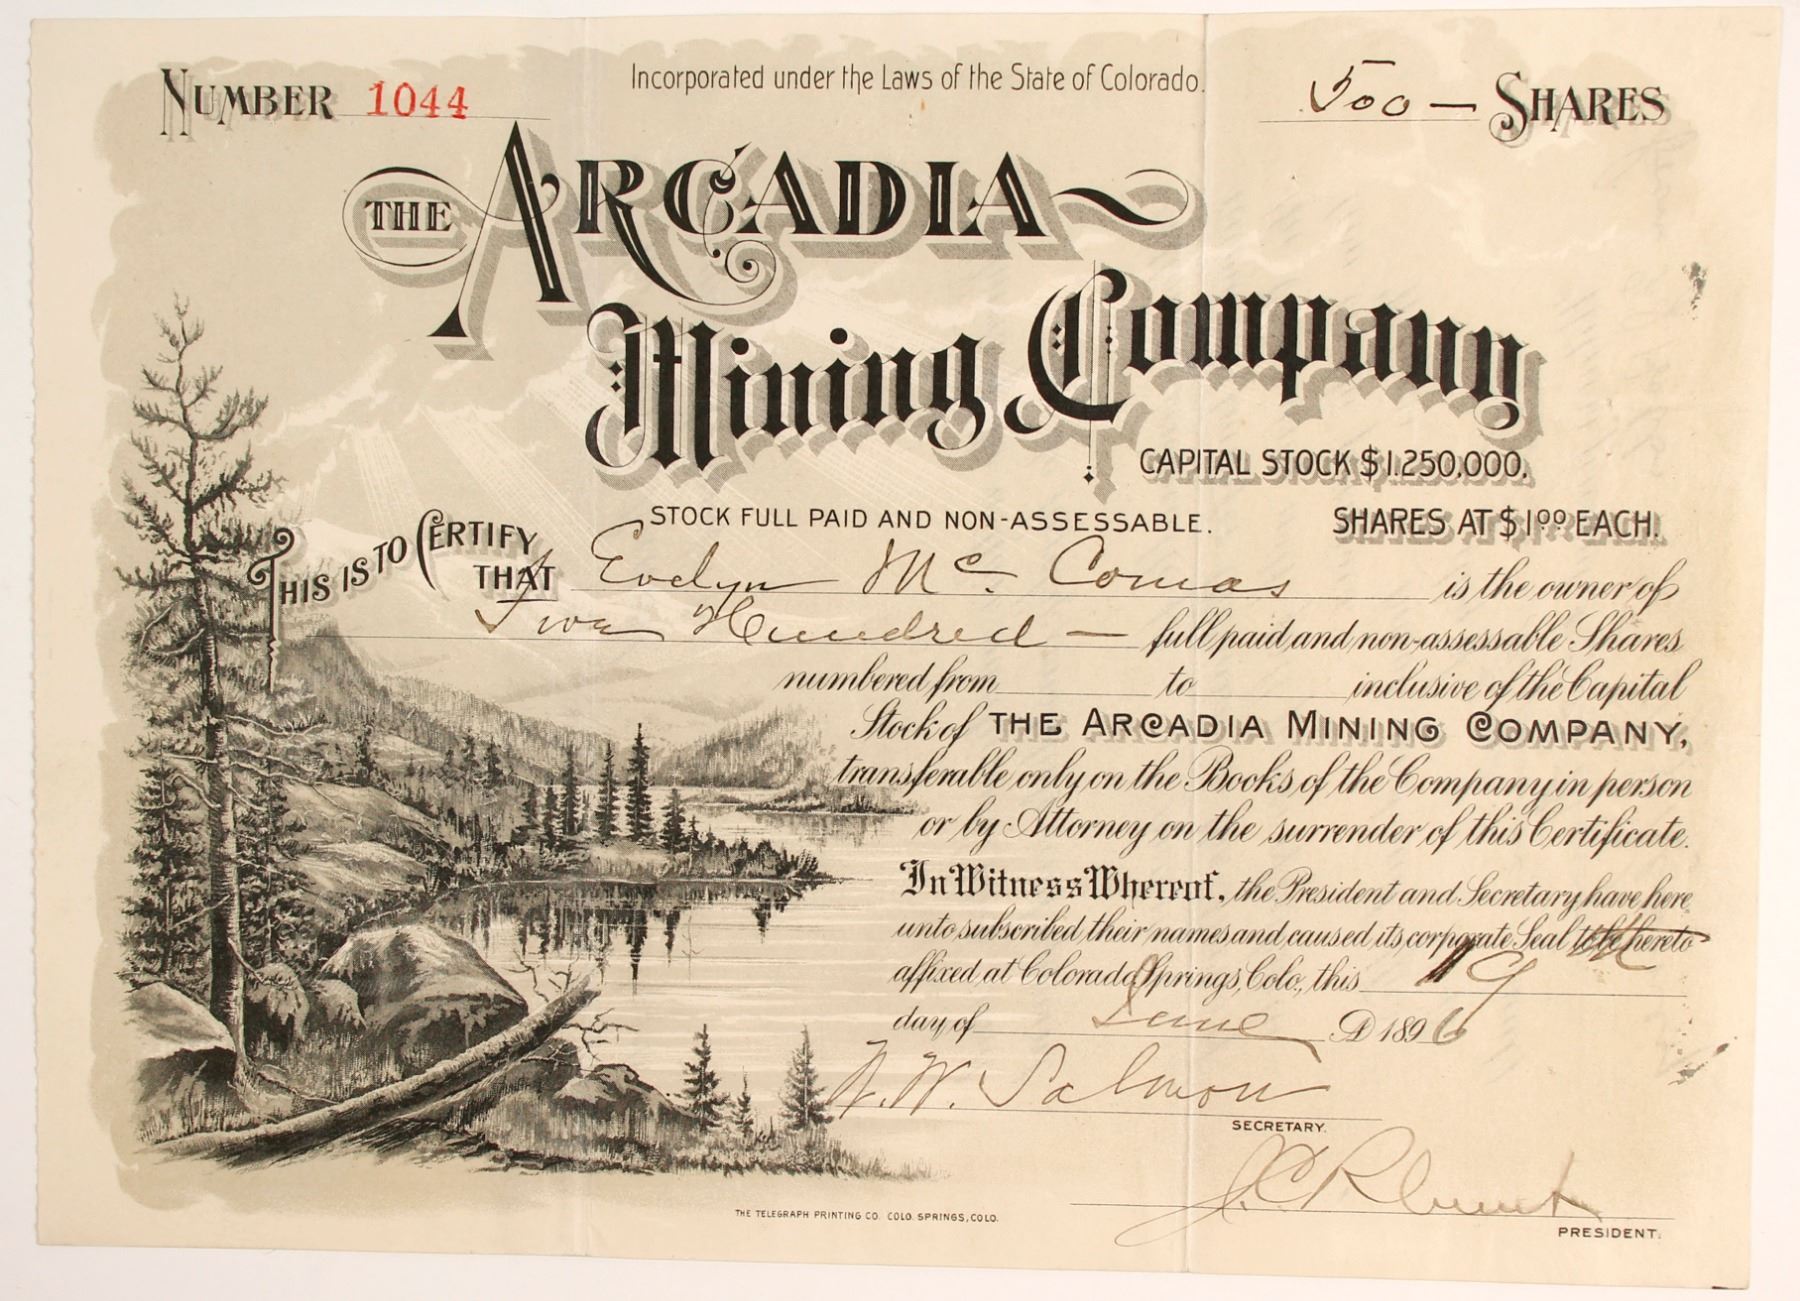 NUMBER 1044
Incorporated under the Laws of the State of Colorado.
500 — SHARES
THE ARCADIA
Mining Company
CAPITAL STOCK $1.250,000.
STOCK FULL PAID AND NON-ASSESSABLE.
SHARES AT $1.00 EACH.
THIS IS TO CERTIFY THAT Evelyn Mc. Comas is the owner of
Five Hundred — full paid and non-assessable Shares
numbered from to inclusive of the Capital
Stock of THE ARCADIA MINING COMPANY,
transferable only on the Books of the Company in person
or by Attorney on the surrender of this Certificate.
In Witness Whereof, the President and Secretary have here
unto subscribed their names and caused its corporate Seal to be hereto
affixed at Colorado Springs, Colo., this 19
day of June A.D. 1896
W. Salmon
SECRETARY.
J. C.
PRESIDENT.
THE TELEGRAPH PRINTING CO. COLO. SPRINGS, COLO.